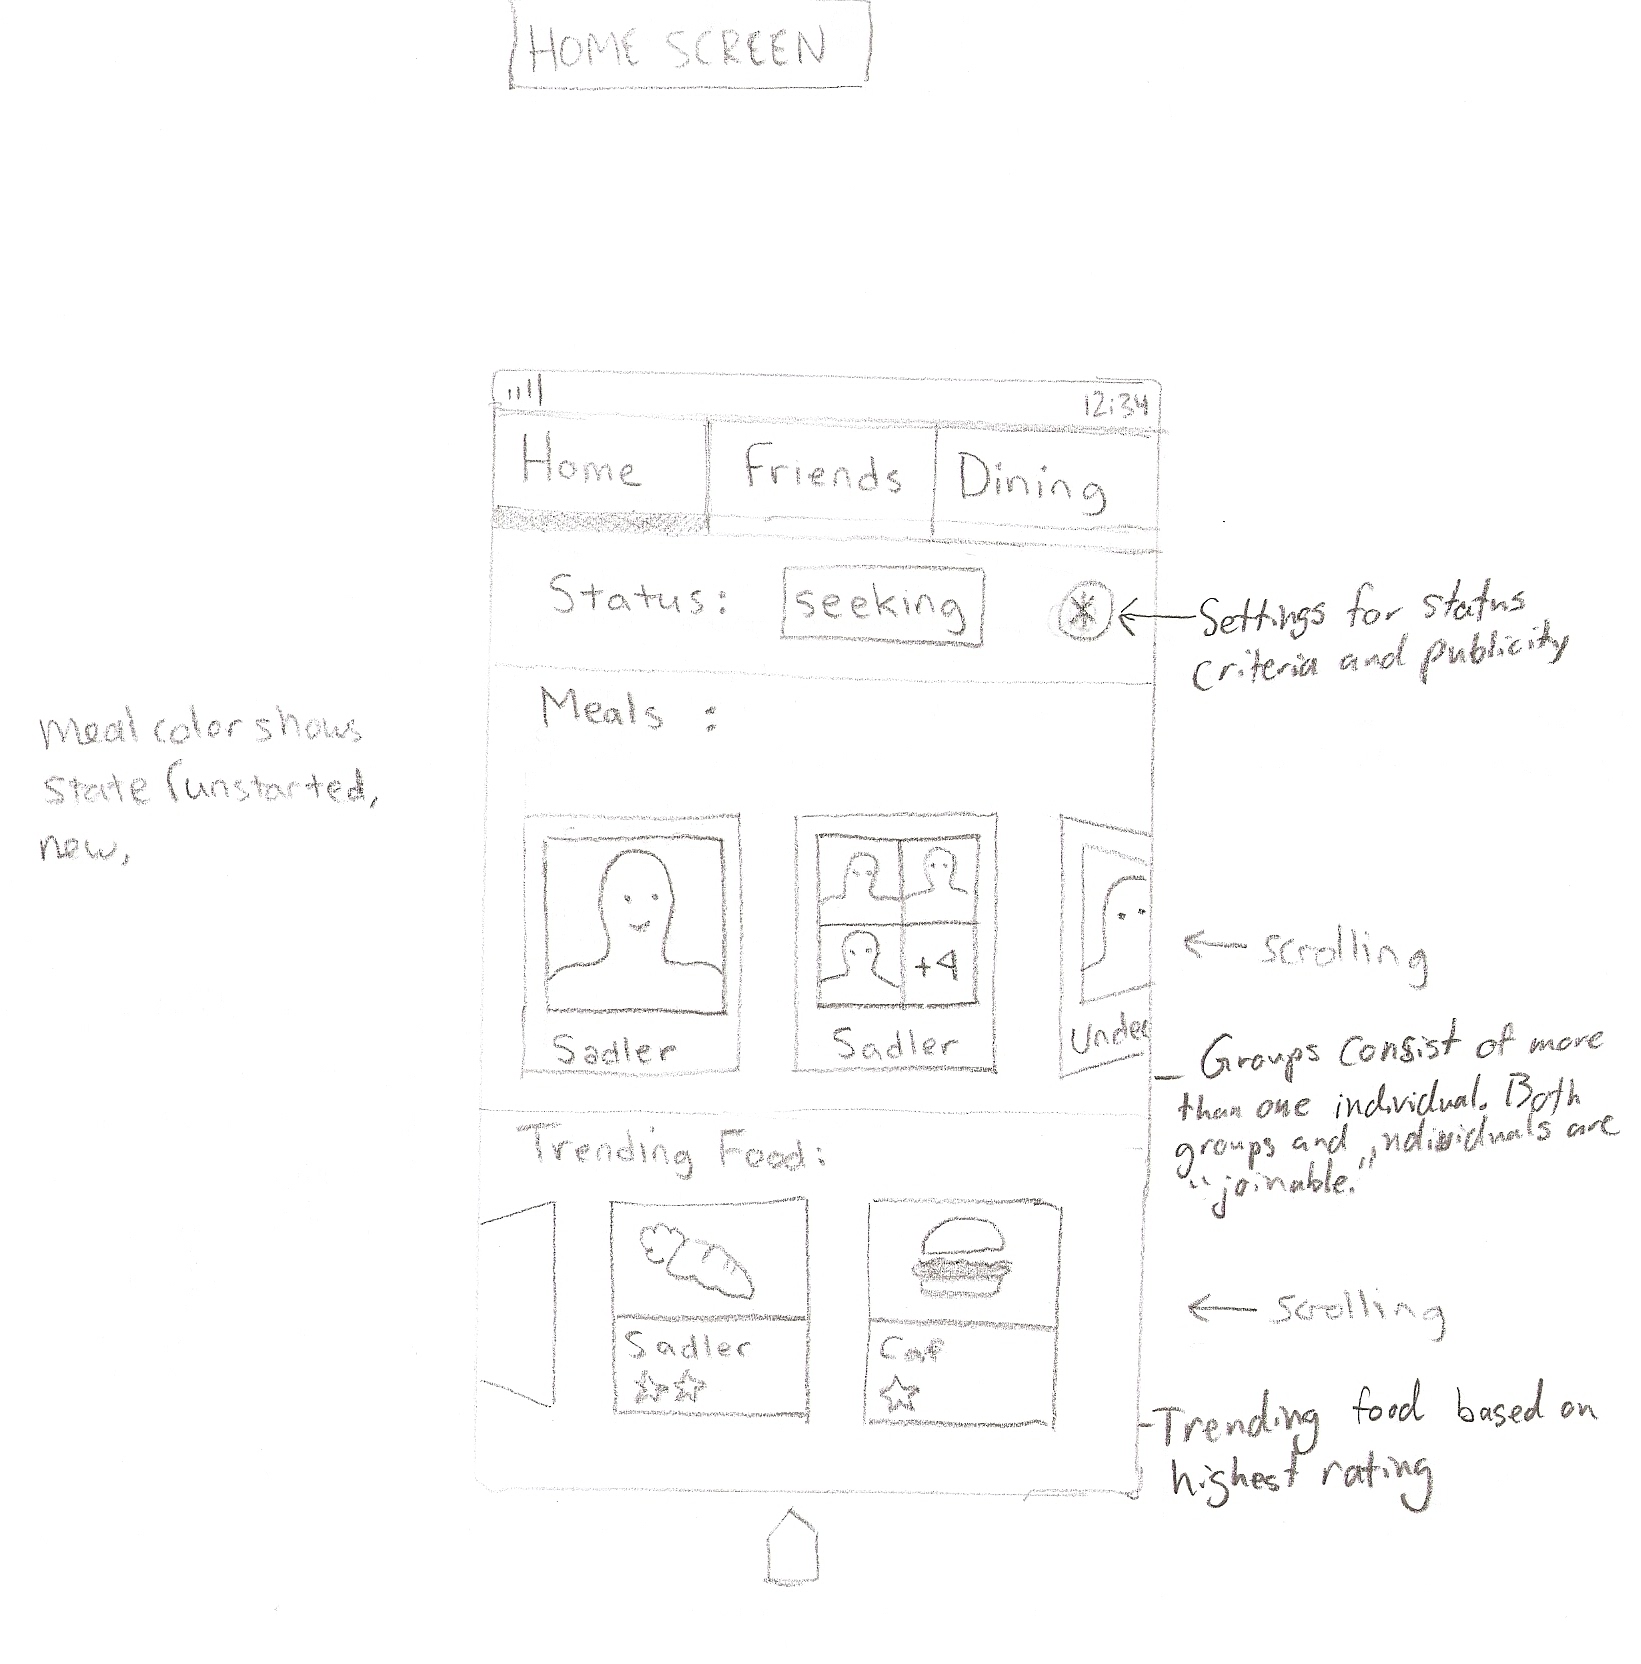 HOME SCREEN
12:34
Home
Friends
Dining
Status:
seeking
Settings for status
criteria and publicity
Meals :
Meal color shows
state (unstarted,
new,
+4
Sadler
Sadler
Undec
scrolling
Groups consist of more
than one individual. Both
groups and individuals are
"joinable."
Trending Food:
Sadler
Caf
scrolling
Trending food based on
highest rating